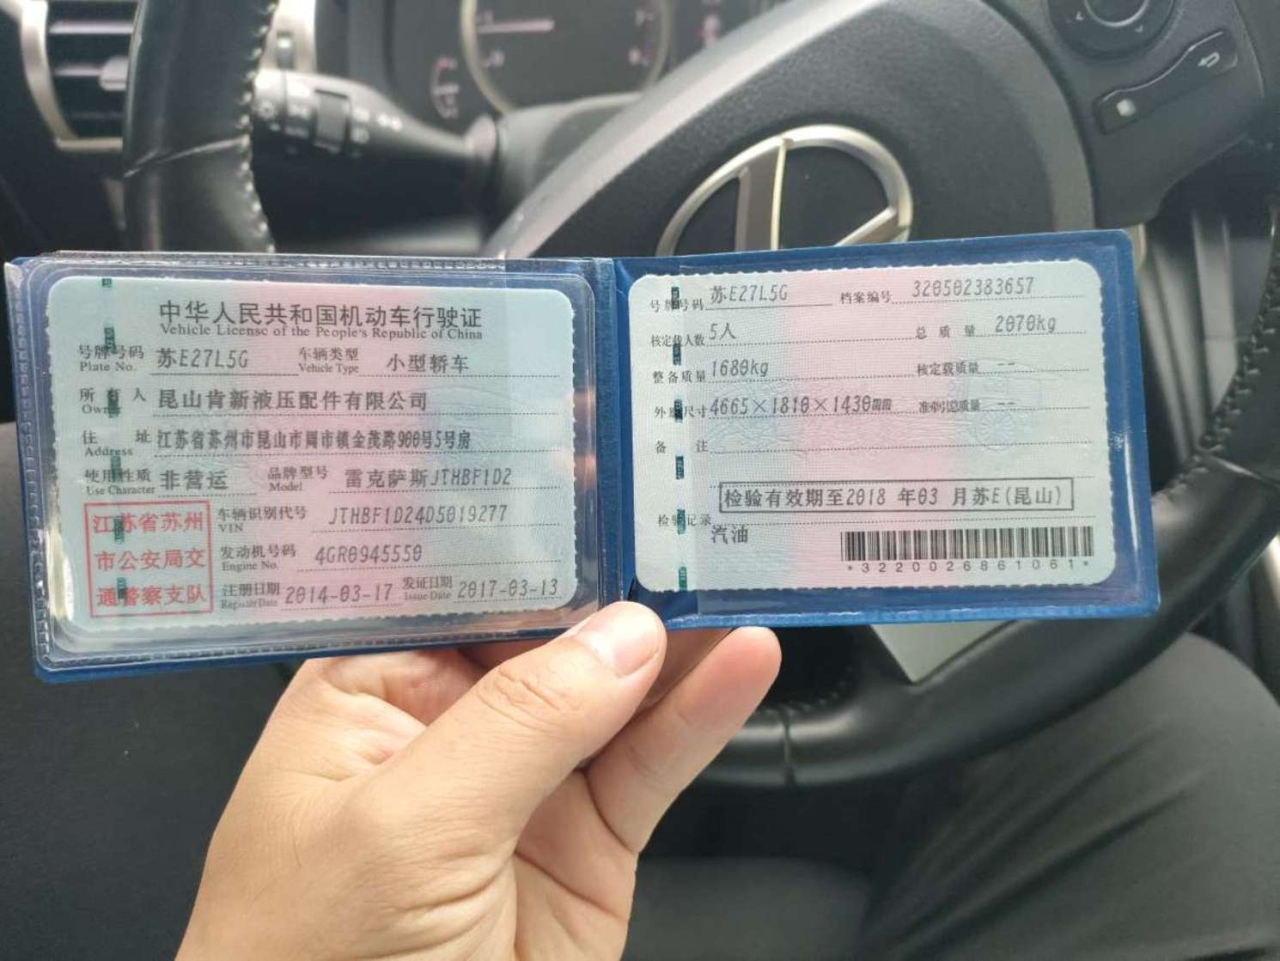 中华人民共和国机动车行驶证
Vehicle License of the People's Republic of China
号牌号码 Plate No. 苏E27L5G 车辆类型 Vehicle Type 小型轿车
所有人 Owner 昆山肯新液压配件有限公司
住址 Address 江苏省苏州市昆山市周市镇金茂路900号5号房
使用性质 Use Character 非营运 品牌型号 Model 雷克萨斯JTHBF1D2
车辆识别代号 VIN JTHBF1D24D5019277
发动机号码 Engine No. 4GR0945550
注册日期 Register Date 2014-03-17 发证日期 Issue Date 2017-03-13
江苏省苏州
市公安局交
通警察支队
号牌号码 苏E27L5G 档案编号 320502383657
核定载人数 5人 总质量 2070kg
整备质量 1680kg 核定载质量 --
外廓尺寸 4665×1810×1430mm 准牵引总质量 --
备注
检验有效期至2018年03月苏E(昆山)
检验记录
汽油
*3220026861061*